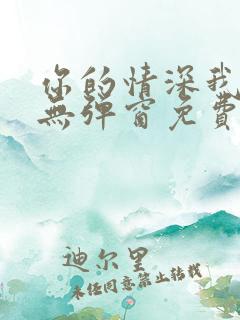 你的情深我
無彈窗免費
迪尔里
未经同意禁止转载